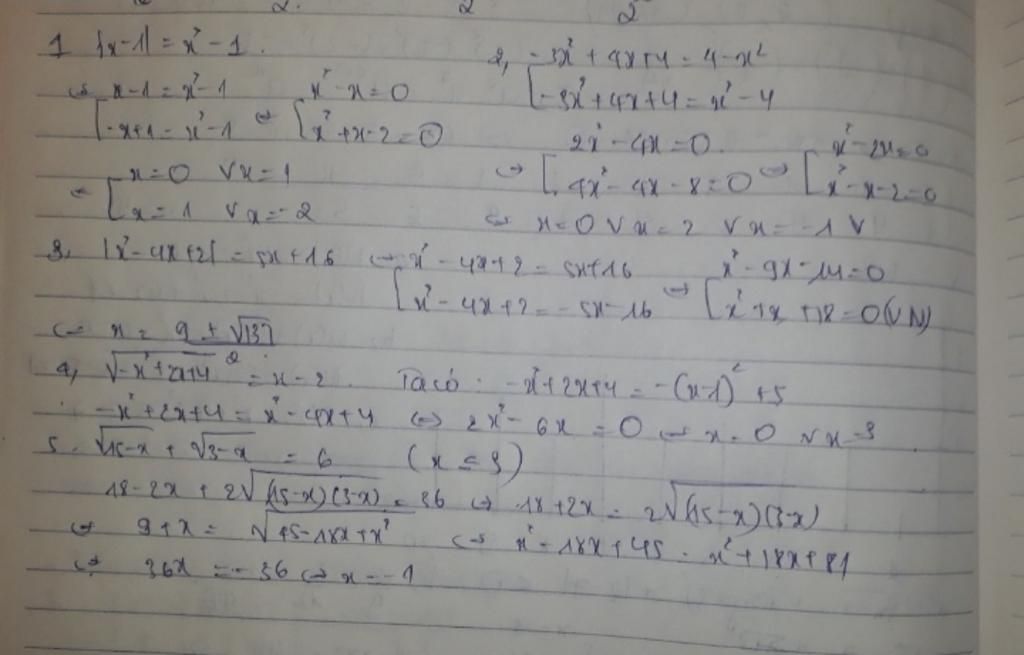 2. 2 2
1 |x-1| = x² - 1. 2, -3x² + 4x + 4 = 4 - x²
⇔ x-1 = x² - 1 x² - x = 0 [-3x² + 4x + 4 = x² - 4
[-x+1 = x² - 1 ⇔ [x² + x - 2 = 0 2x² - 4x = 0. x² - 2x = 0
x = 0 ∨ x = 1 ⇔ [4x² - 4x - 8 = 0 ⇔ [x² - x - 2 = 0
⇔ [x = 1 ∨ x = -2 ⇔ x = 0 ∨ x = 2 ∨ x = -1 ∨
3, |x² - 4x + 2| = 5x + 16 ⇔ x² - 4x + 2 = 5x + 16 x² - 9x - 14 = 0
[x² - 4x + 2 = -5x - 16 ⇔ [x² + x + 18 = 0 (VN)
⇔ x = 9 ± √137
2
4, √-x² + 2x + 4 = x - 2. Ta có: -x² + 2x + 4 = -(x-1)² + 5
-x² + 2x + 4 = x² - 4x + 4 ⇔ 2x² - 6x = 0 ⇔ x = 0 ∨ x = 3
5. √15-x + √3-x = 6 (x ≤ 3)
18 - 2x + 2√(15-x)(3-x) = 36 ⇔ 18 + 2x = 2√(15-x)(3-x)
⇔ 9 + x = √45 - 18x + x² ⇔ x² - 18x + 45 = x² + 18x + 81
⇔ 36x = -36 ⇔ x = -1